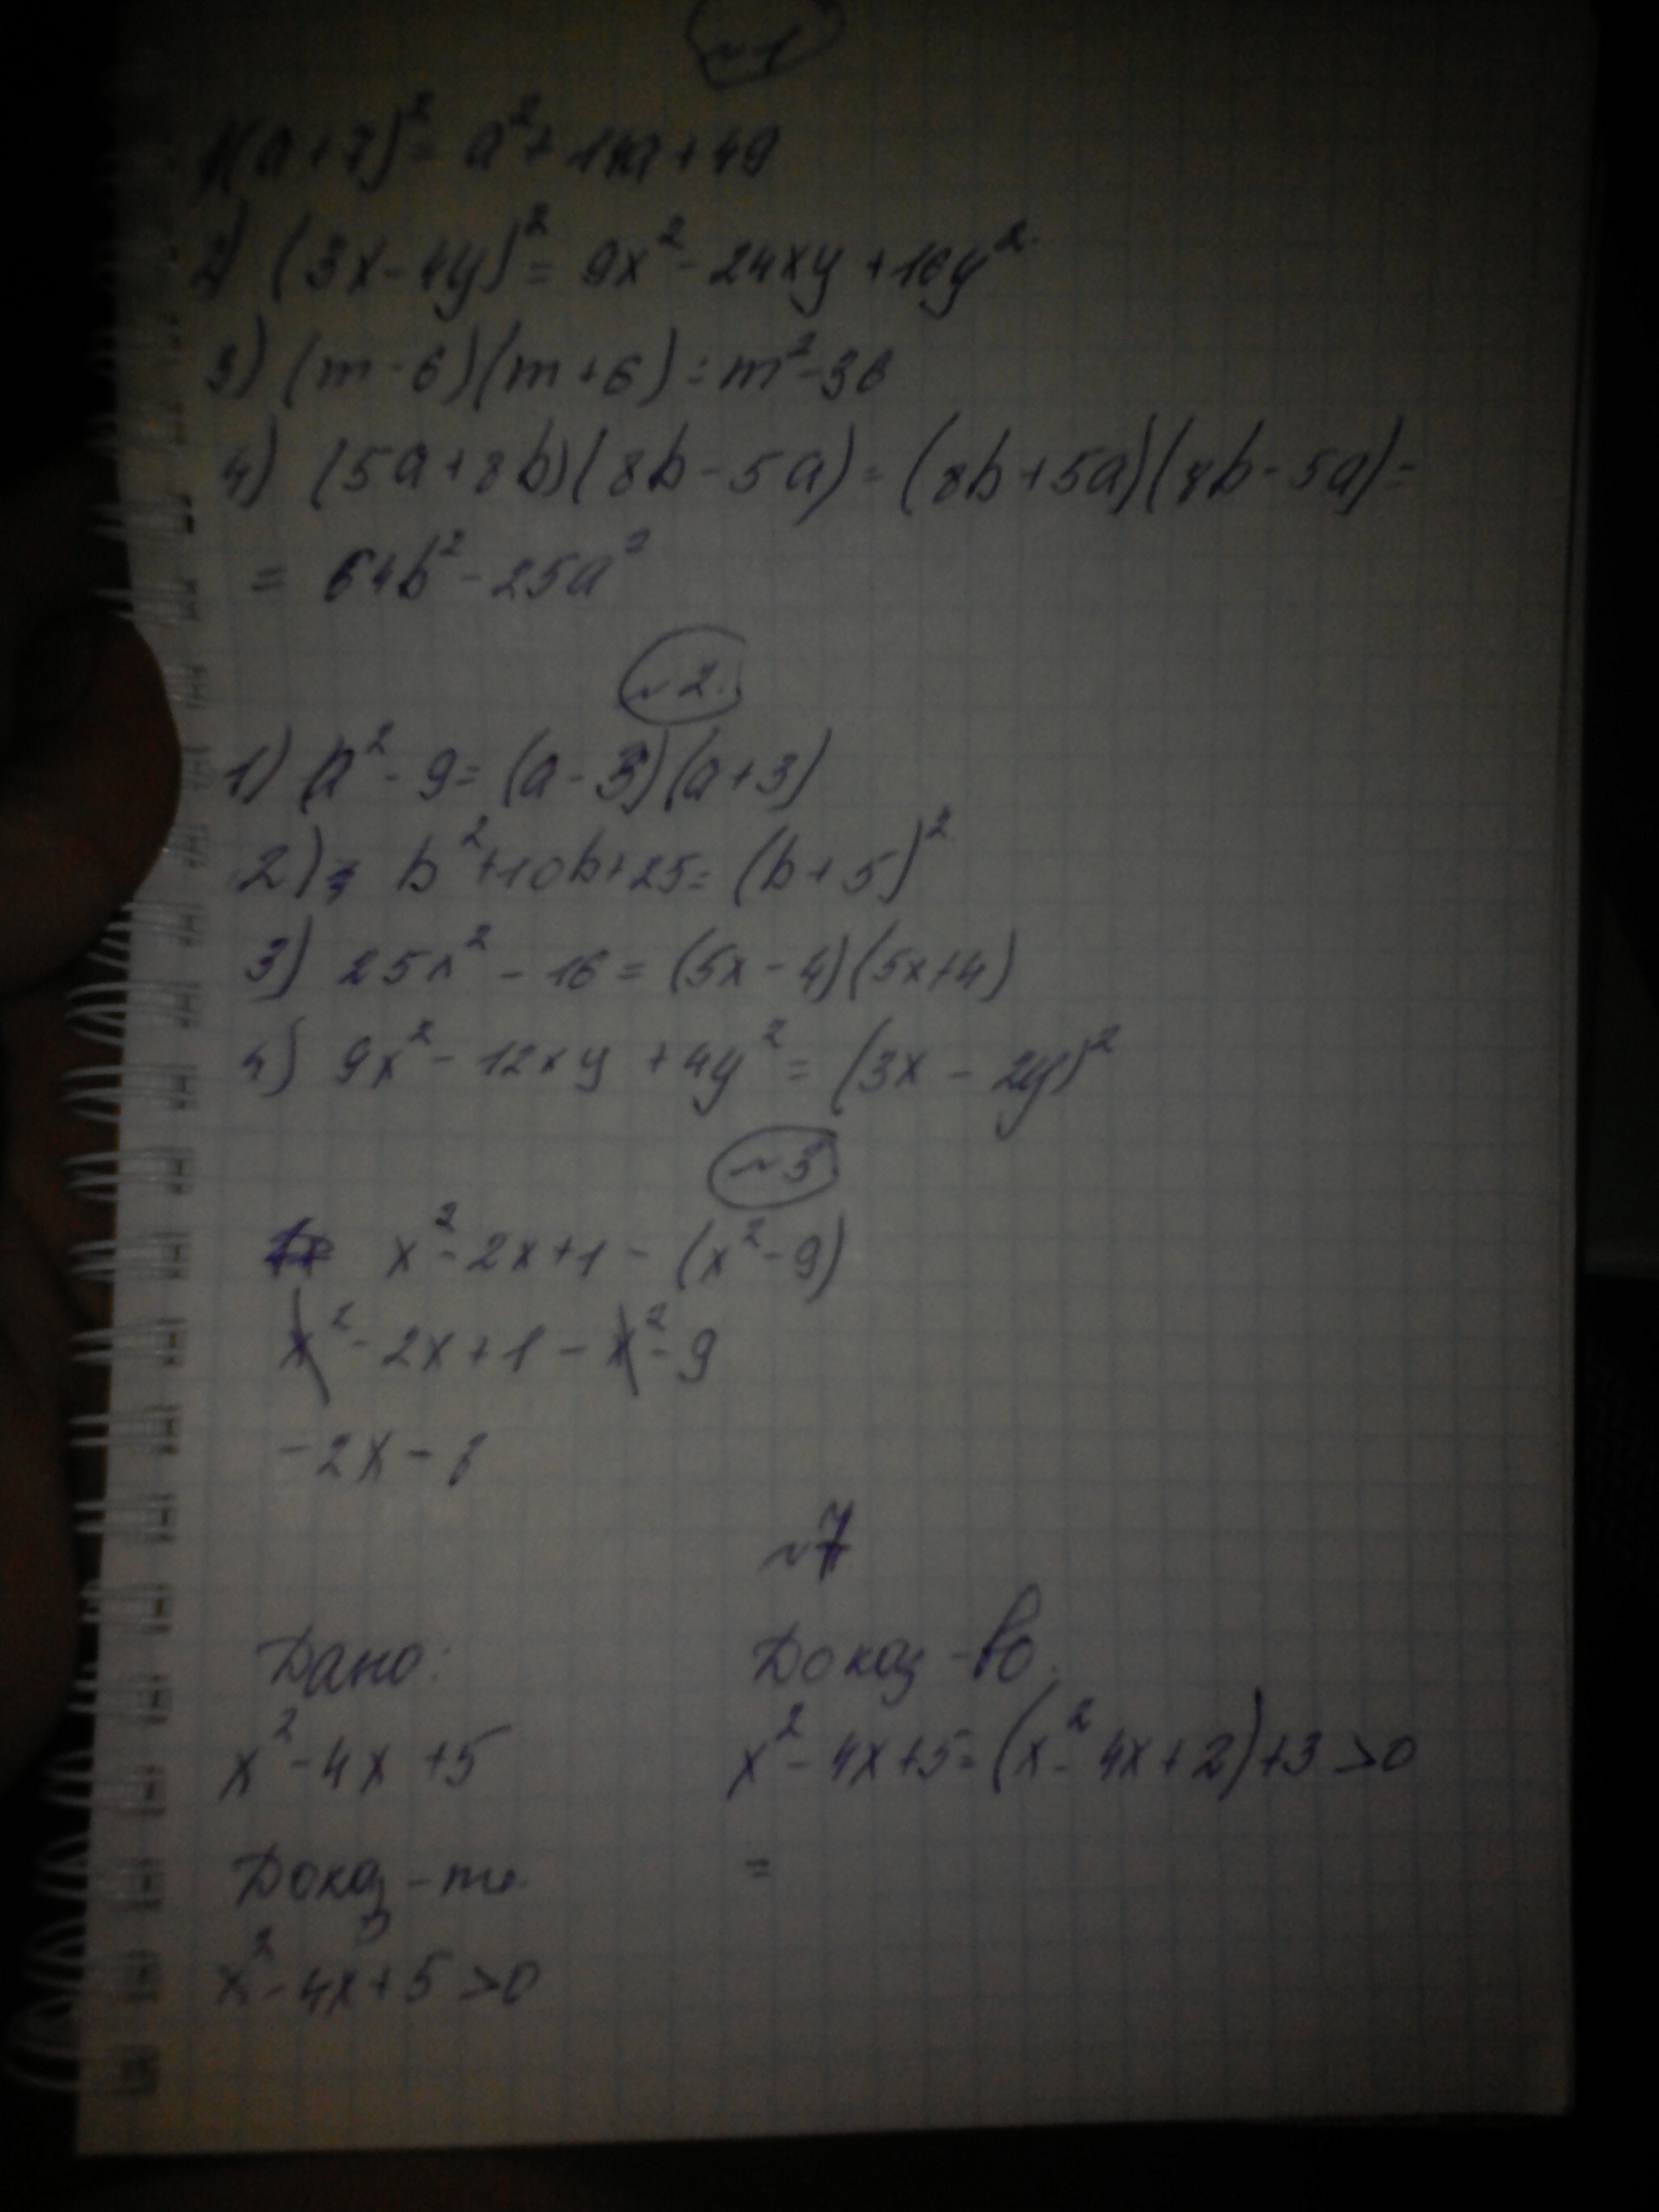 ~1
1) (a+7)² = a² + 14a + 49
2) (3x-4y)² = 9x² - 24xy + 16y²
3) (m-6)(m+6) = m² - 36
4) (5a+8b)(8b-5a) = (8b+5a)(8b-5a) =
= 64b² - 25a²
~2.
1) a² - 9 = (a-3)(a+3)
2) b² + 10b + 25 = (b+5)²
3) 25x² - 16 = (5x-4)(5x+4)
4) 9x² - 12xy + 4y² = (3x - 2y)²
~3
x² - 2x + 1 - (x² - 9)
x² - 2x + 1 - x² - 9
-2x - 8
~7
Дано: Доказ-во.
x² - 4x + 5 x² - 4x + 5 = (x² - 4x + 2) + 3 > 0
Доказ-ть. =
x² - 4x + 5 > 0